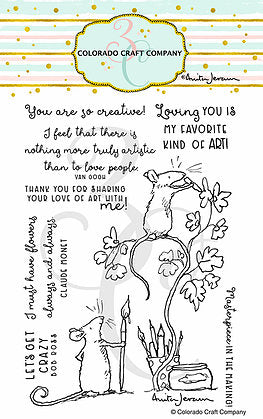 3C
COLORADO CRAFT COMPANY
© Anita Jeram
You are so creative!
Loving YOU IS
MY FAVORITE
KIND OF ART!
I feel that there is
nothing more truly artistic
than to love people.
VAN GOGH
THANK YOU FOR SHARING
YOUR LOVE OF ART WITH
me!
I must have flowers
always and always
CLAUDE MONET
LET'S GET
CRAZY
BOB ROSS
Masterpiece IN THE MAKING!
Anita Jeram
© Colorado Craft Company